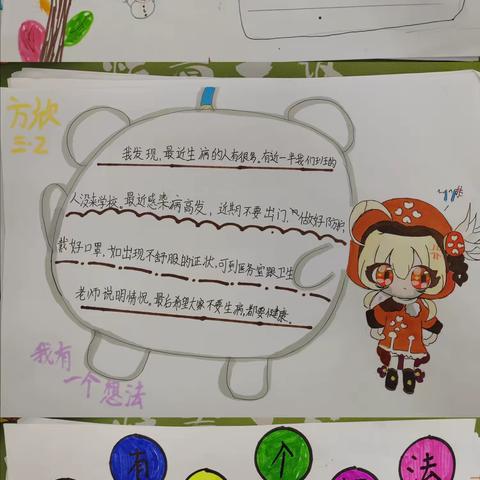 方欣
三.2
我发现,最近生病的人有很多,有近一半我们班的
人没来学校。最近感染病高发,近期不要出门,做好防护
戴好口罩,如出现不舒服的证状,可到医务室跟卫生
老师说明情况。最后希望大家不要生病,都要健康。
我有
一个想法
有
个
法